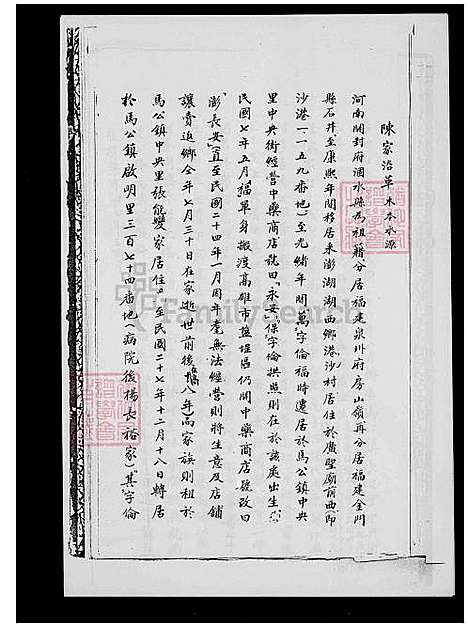 陳家沿革木本水源
河南開封府酒水縣為祖籍分居福建泉州府房山嶺再分居福建金門
縣石井至康熙年間移居來澎湖湖西鄉港沙村居住於廣聖廟前西(即
沙港(一一五九番地)至光緒年間萬字倫福時遷居於馬公鎮中央
里中央街經營中藥商店號曰「永安」保字倫拱照則在於該處出生
民國七年五月福單身搬渡高雄市鹽埕區仍開中藥商店號改曰
澎長安」直至民國二十四年一月周年耄無法經營則將生意及店鋪
讓賣返鄉全年七月三十日在家逝世前後八年)而家族則租於
馬公鎮中央里張能變家居住至民國二十七年十二月十八日轉居
於馬公鎮啟明里三百七十四番地(病院後楊長裕家)其字倫
FamilySearch